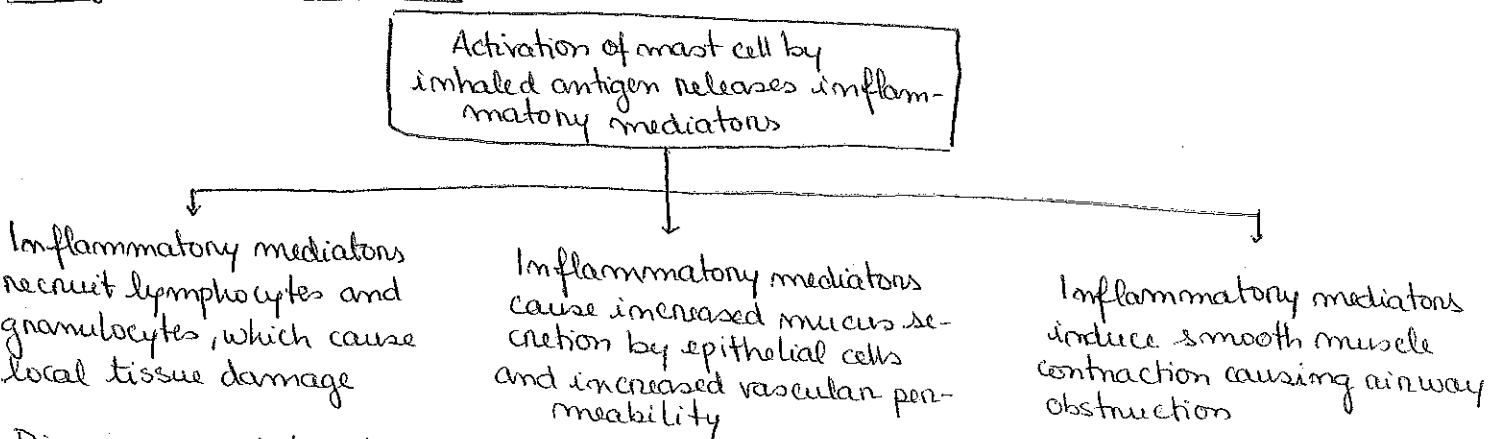 Activation of mast cell by
inhaled antigen releases inflam-
matory mediators
Inflammatory mediators
recruit lymphocytes and
granulocytes, which cause
local tissue damage
Inflammatory mediators
cause increased mucus se-
cretion by epithelial cells
and increased vascular per-
meability
Inflammatory mediators
induce smooth muscle
contraction causing airway
obstruction